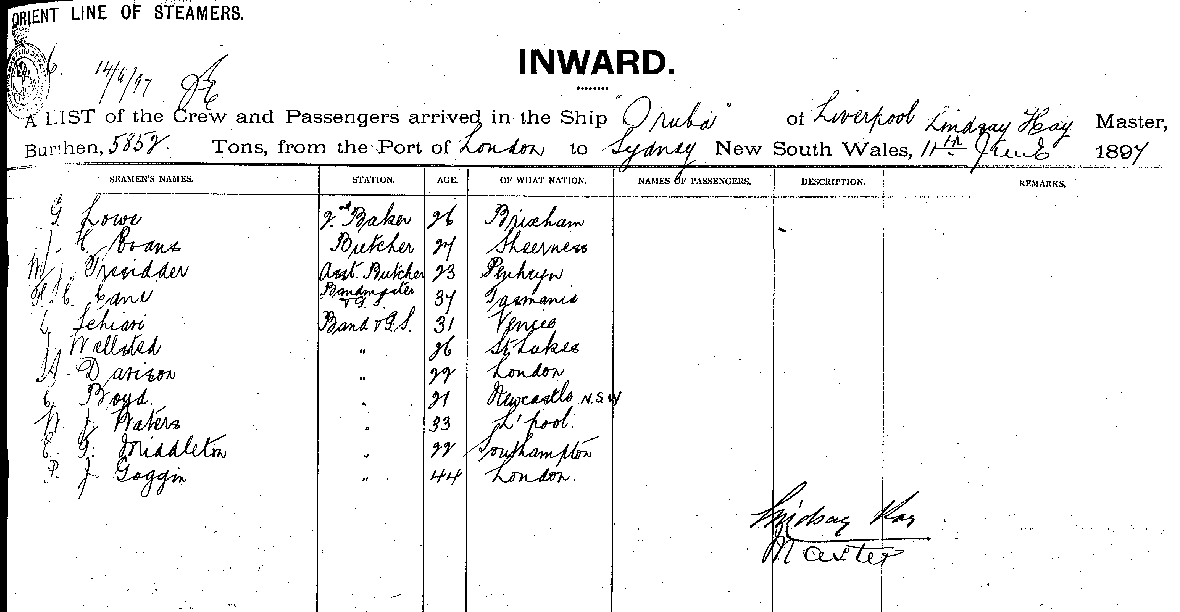 ORIENT LINE OF STEAMERS.
14/6/97
INWARD.
A LIST of the Crew and Passengers arrived in the Ship "Oruba" of Liverpool Lindsay Kay Master,
Burthen, 5852 Tons, from the Port of London to Sydney New South Wales, 11th June 1897
SEAMEN'S NAMES. STATION. AGE. OF WHAT NATION. NAMES OF PASSENGERS. DESCRIPTION. REMARKS.
G. Lowe 2nd Baker 26 Brixham
J. Evans Butcher 27 Sheerness
W. J. Tresidder Asst. Butcher 23 Penhryn
Cane Bandmaster & G.S. 37 Tasmania
Schiavi Band & G.S. 31 Venice
Wellsted " 26 St. Lukes
Davison " 22 London
C. Boyd. " 21 Newcastle N.S.W
W. J. Waters " 33 L'pool.
E. G. Middleton " 22 Southampton
P. J. Goggin " 44 London.
Lindsay Kay
Master